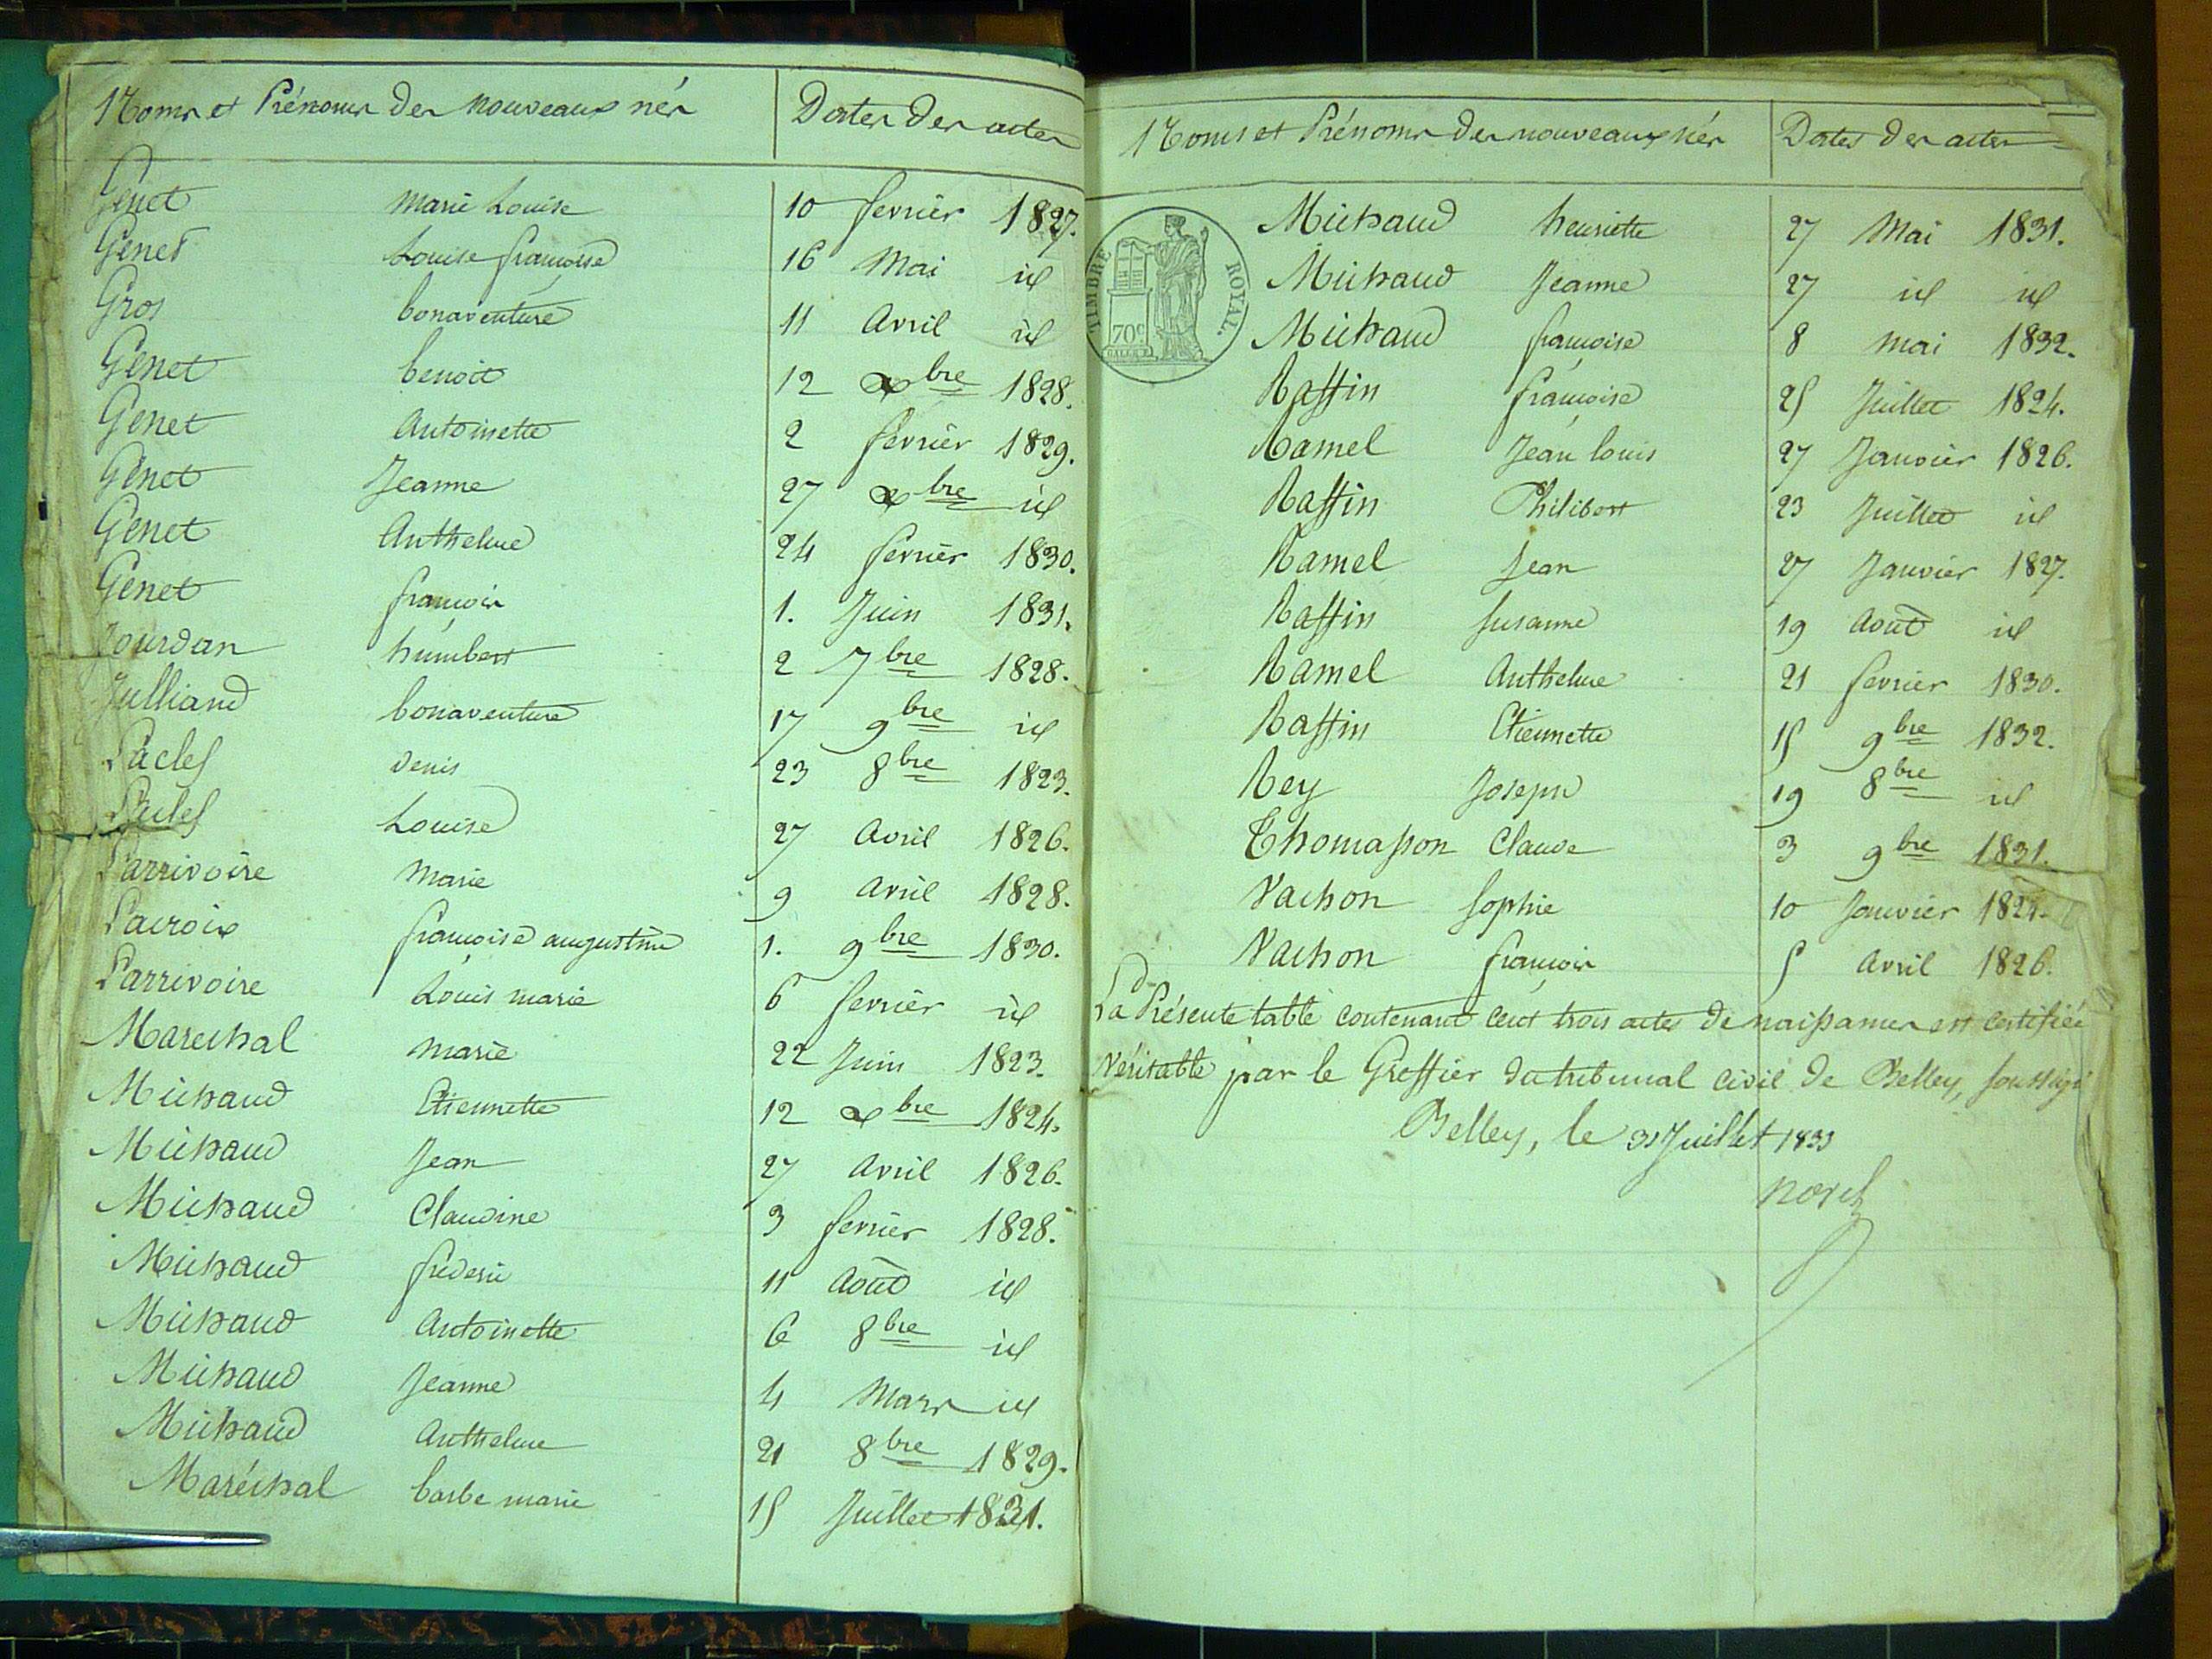 Noms et Prénoms des nouveaux nés Dates des actes
Genet Marie Louise 10 fevrier 1827.
Genet Louise françoise 16 Mai id
Gros bonaventure 11 Avril id
Genet benoit 12 Xbre 1828.
Genet Antoinette 2 fevrier 1829.
Genet Jeanne 27 Xbre id
Genet Anthelme 24 fevrier 1830.
Genet françois 1. Juin 1831.
Jourdan humbert 2 7bre 1828.
Julliand bonaventure 17 9bre id
Laclef denis 23 8bre 1823.
Laclef Louise 27 Avril 1826.
Larrivoire Marie 9 Avril 1828.
Lacroix françoise augustine 1. 9bre 1830.
Larrivoire Louis marie 6 fevrier id
Marechal Marie 22 Juin 1823.
Michaud Etiennette 12 Xbre 1824.
Michaud Jean 27 Avril 1826.
Michaud Claudine 3 fevrier 1828.
Michaud frederic 11 Août id
Michaud Antoinette 6 8bre id
Michaud Jeanne 4 Mars id
Michaud Anthelme 21 8bre 1829.
Maréchal barbe marie 15 Juillet 1831.
Noms et Prénoms des nouveaux nés Dates des actes
TIMBRE ROYAL.
70c
Michaud henriette 27 Mai 1831.
Michaud Jeanne 27 id id
Michaud françoise 8 mai 1832.
Raffin françoise 25 Juillet 1824.
Ramel Jean louis 27 Janvier 1826.
Raffin Philibert 23 Juillet id
Ramel Jean 27 Janvier 1827.
Raffin Susanne 19 Août id
Ramel Anthelme 21 fevrier 1830.
Raffin Etiennette 15 9bre 1832.
Rey Joseph 19 8bre id
Thomasson Claude 3 9bre 1831.
Vachon Sophie 10 Janvier
Vachon françois 5 Avril 1826.
La Présente table contenant cent trois actes de naissances est certifiée
Véritable par le Greffier du tribunal civil de Belley, soussigné
Belley, le 31 Juillet 1833